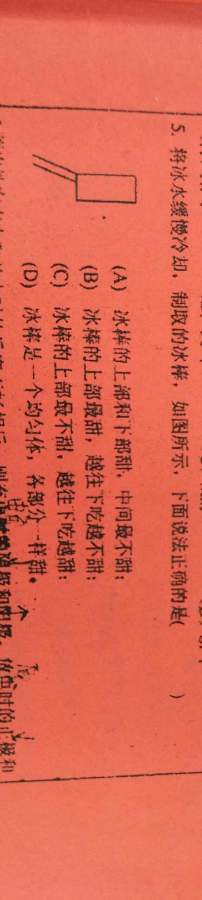 5. 将冰水缓慢冷却，制取的冰棒，如图所示，下面说法正确的是(　　)
(A) 冰棒的上部和下部甜，中间最不甜；
(B) 冰棒的上部最甜，越往下吃越不甜；
(C) 冰棒的上部最不甜，越往下吃越甜；
(D) 冰棒是一个均匀体，各部分一样甜。